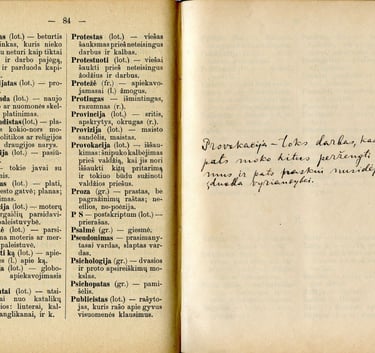 — 84 —
(lot.) — beturtis
kuris nieko
neturi kaip tiktai
ir darbo pajėgą,
ir parduoda kapi-
(lot.) — pro-
(lot.) — naujo
ar nuomonės skel-
platinimas.
(lot.) — pla-
kokio-nors mo-
politikos ar religijos
draugijos narys.
(lot.) — pasiū-
tokie javai su
(lot.) — plati,
(lot.) — moterų
parsidavi-
(lot.) — parsi-
moteris ar mer-
paleistuvė.
(lot.) — apie-
(l.) apie ką.
(lot.) — globo-
apiekavojimasis
(lot.) — utai-
nuo katalikų
liuterai, kal-
anglikanai, ir k.
Protestas (lot.) — viešas
šauksmas prieš neteisingus
darbus ir kalbas.
Protestuoti (lot.) — viešai
šaukti prieš neteisingus
žodžius ir darbus.
Protežė (fr.) — apiekavo-
jamasai (l.) žmogus.
Protingas — išmintingas,
razumnas (r.)
Provincija (lot.) — sritis,
apskrytys, okrugas (r.)
Provizija (lot.) — maisto
sandėlis, maistas.
Provokacija (lot.) — iššau-
kimas: šnipukalbajėjimas
prieš valdžią, kai jis nori
iššaukti kitų pritarimą
ir tokiu būdu sužinoti
valdžios priešus.
Proza (gr.) — prastas, be
pagražinimų raštas; ne-
eilios, ne-poėzija.
P S — postskriptum, —
prierašas.
Psalmė (gr.) — giesmė.
Pseudonimas — prasimany-
tasai vardas, slaptas var-
das.
Psichologija (gr.) — dvasios
ir proto apsireiškimų mo-
kslas.
Psichopatas (gr.) — pami-
šėlis.
Publicistas (lot.) — rašyto-
jas, kuris rašo apie gyvus
visuomenės klausimus.
Provokacija — toks darbas, kad
pats moko kitus peržengti
mus ir pats paskui